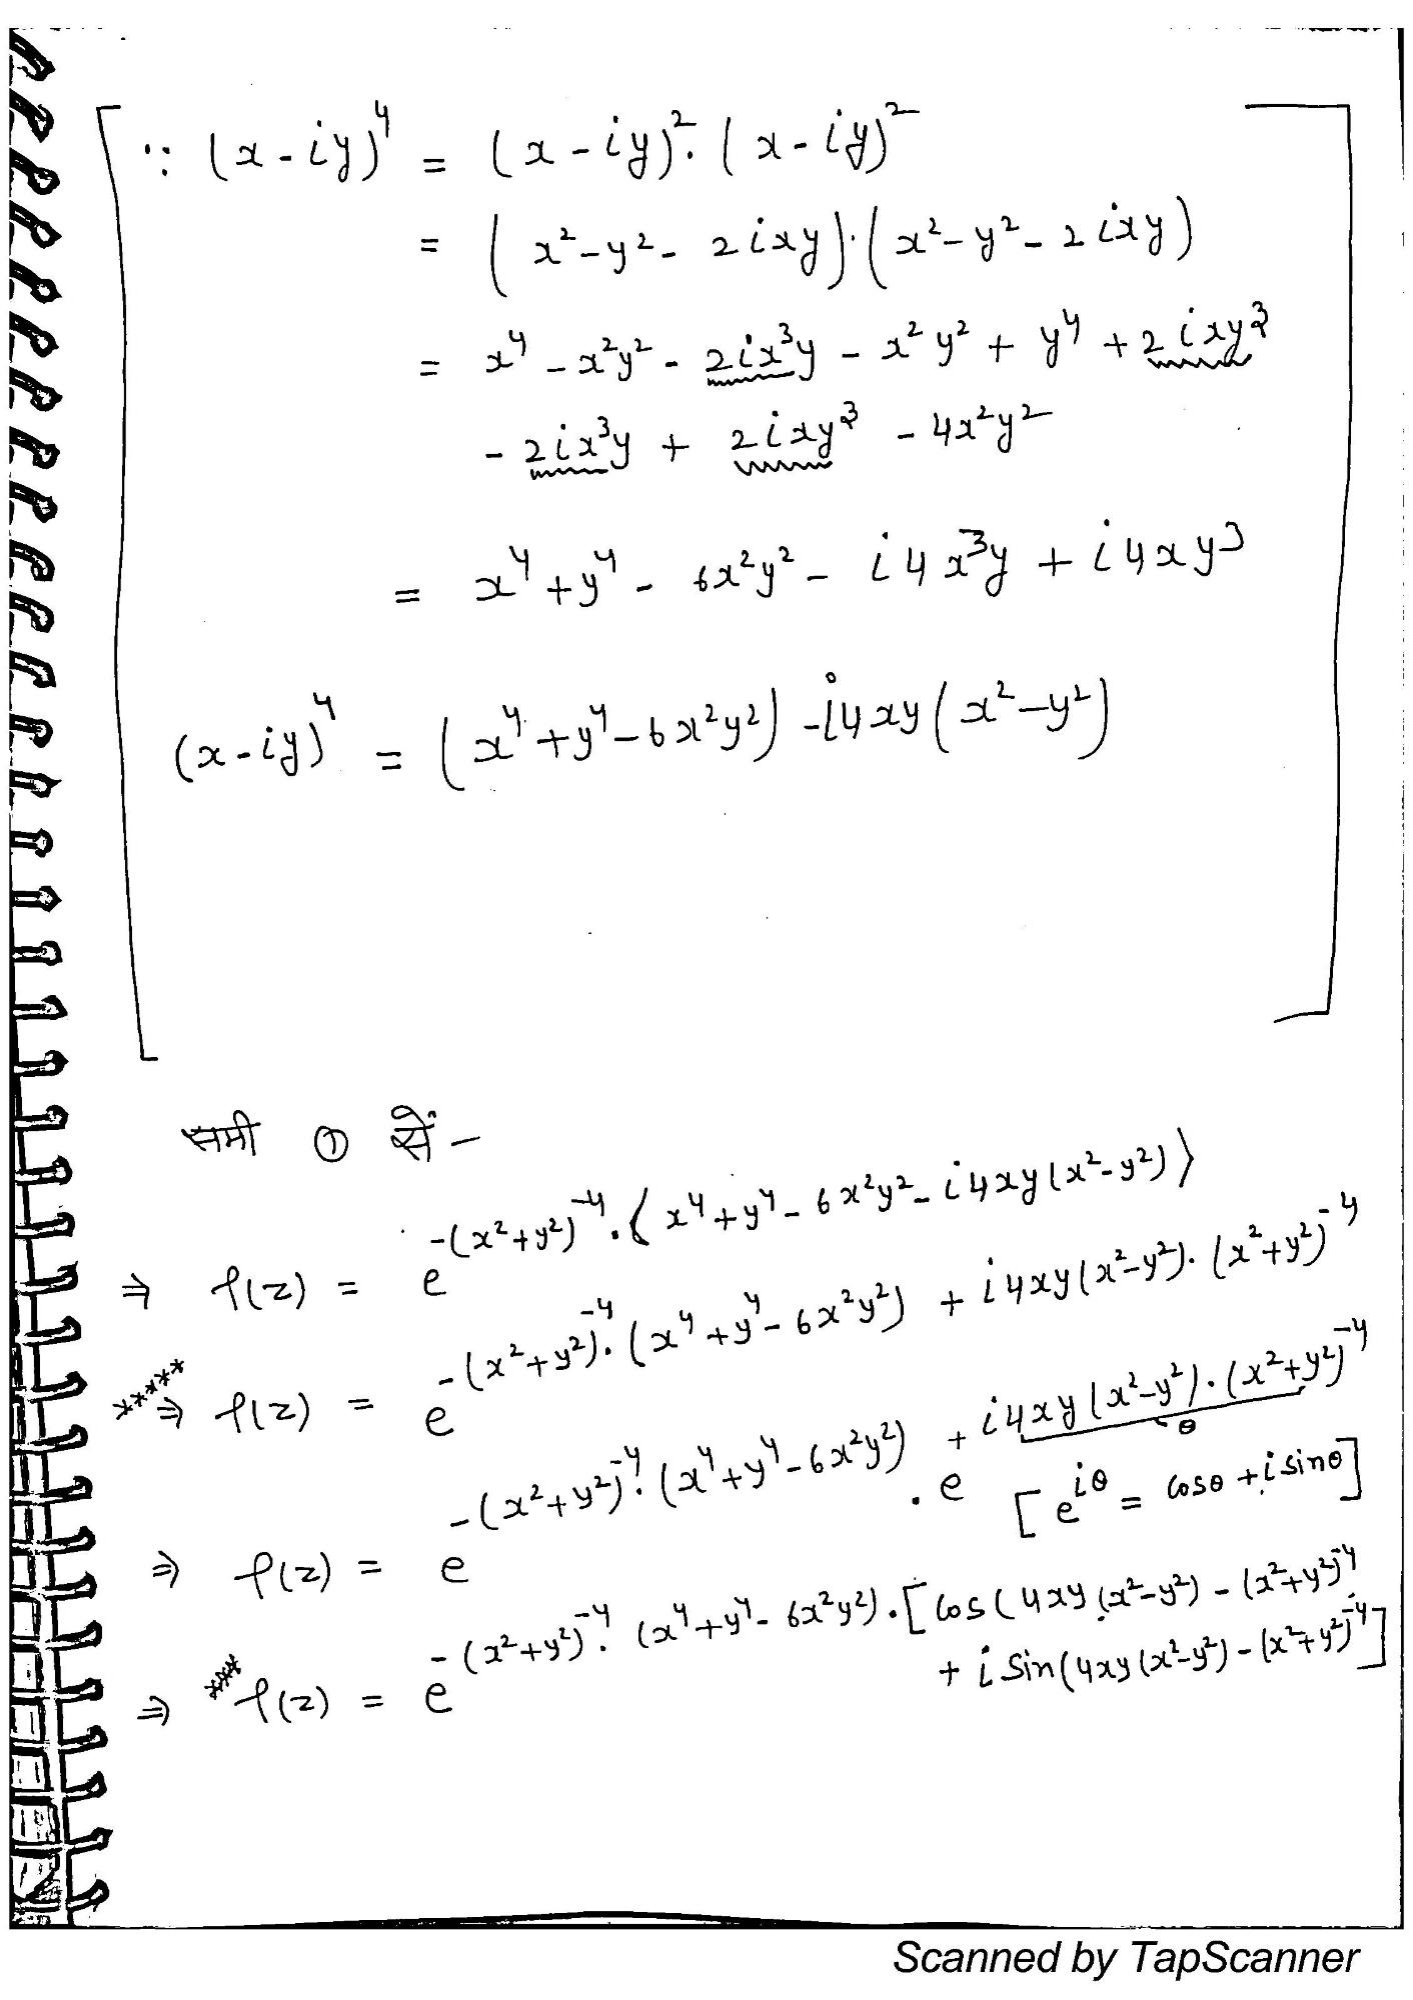 ∵ (x-iy)⁴ = (x-iy)². (x-iy)²
= (x²-y²- 2ixy).(x²-y²-2ixy)
= x⁴ -x²y² - 2ix³y - x²y² + y⁴ + 2ixy³
- 2ix³y + 2ixy³ - 4x²y²
= x⁴ + y⁴ - 6x²y² - i4x³y + i4xy³
(x-iy)⁴ = (x⁴+y⁴-6x²y²) -i4xy(x²-y²)
समी ① सें -
⇒ f(z) = e^{-(x²+y²)⁻⁴.(x⁴+y⁴-6x²y²-i4xy(x²-y²))}
***** ⇒ f(z) = e^{-(x²+y²)⁻⁴.(x⁴+y⁴-6x²y²) + i4xy(x²-y²).(x²+y²)⁻⁴}
⇒ f(z) = e^{-(x²+y²)⁻⁴.(x⁴+y⁴-6x²y²)} . e^{+i4xy(x²-y²).(x²+y²)⁻⁴}
θ
[e^{iθ} = cosθ + i sinθ]
⇒ *** f(z) = e^{-(x²+y²)⁻⁴.(x⁴+y⁴-6x²y²)}.[cos(4xy(x²-y²) - (x²+y²)⁻⁴
+ i sin(4xy(x²-y²) - (x²+y²)⁻⁴]
Scanned by TapScanner